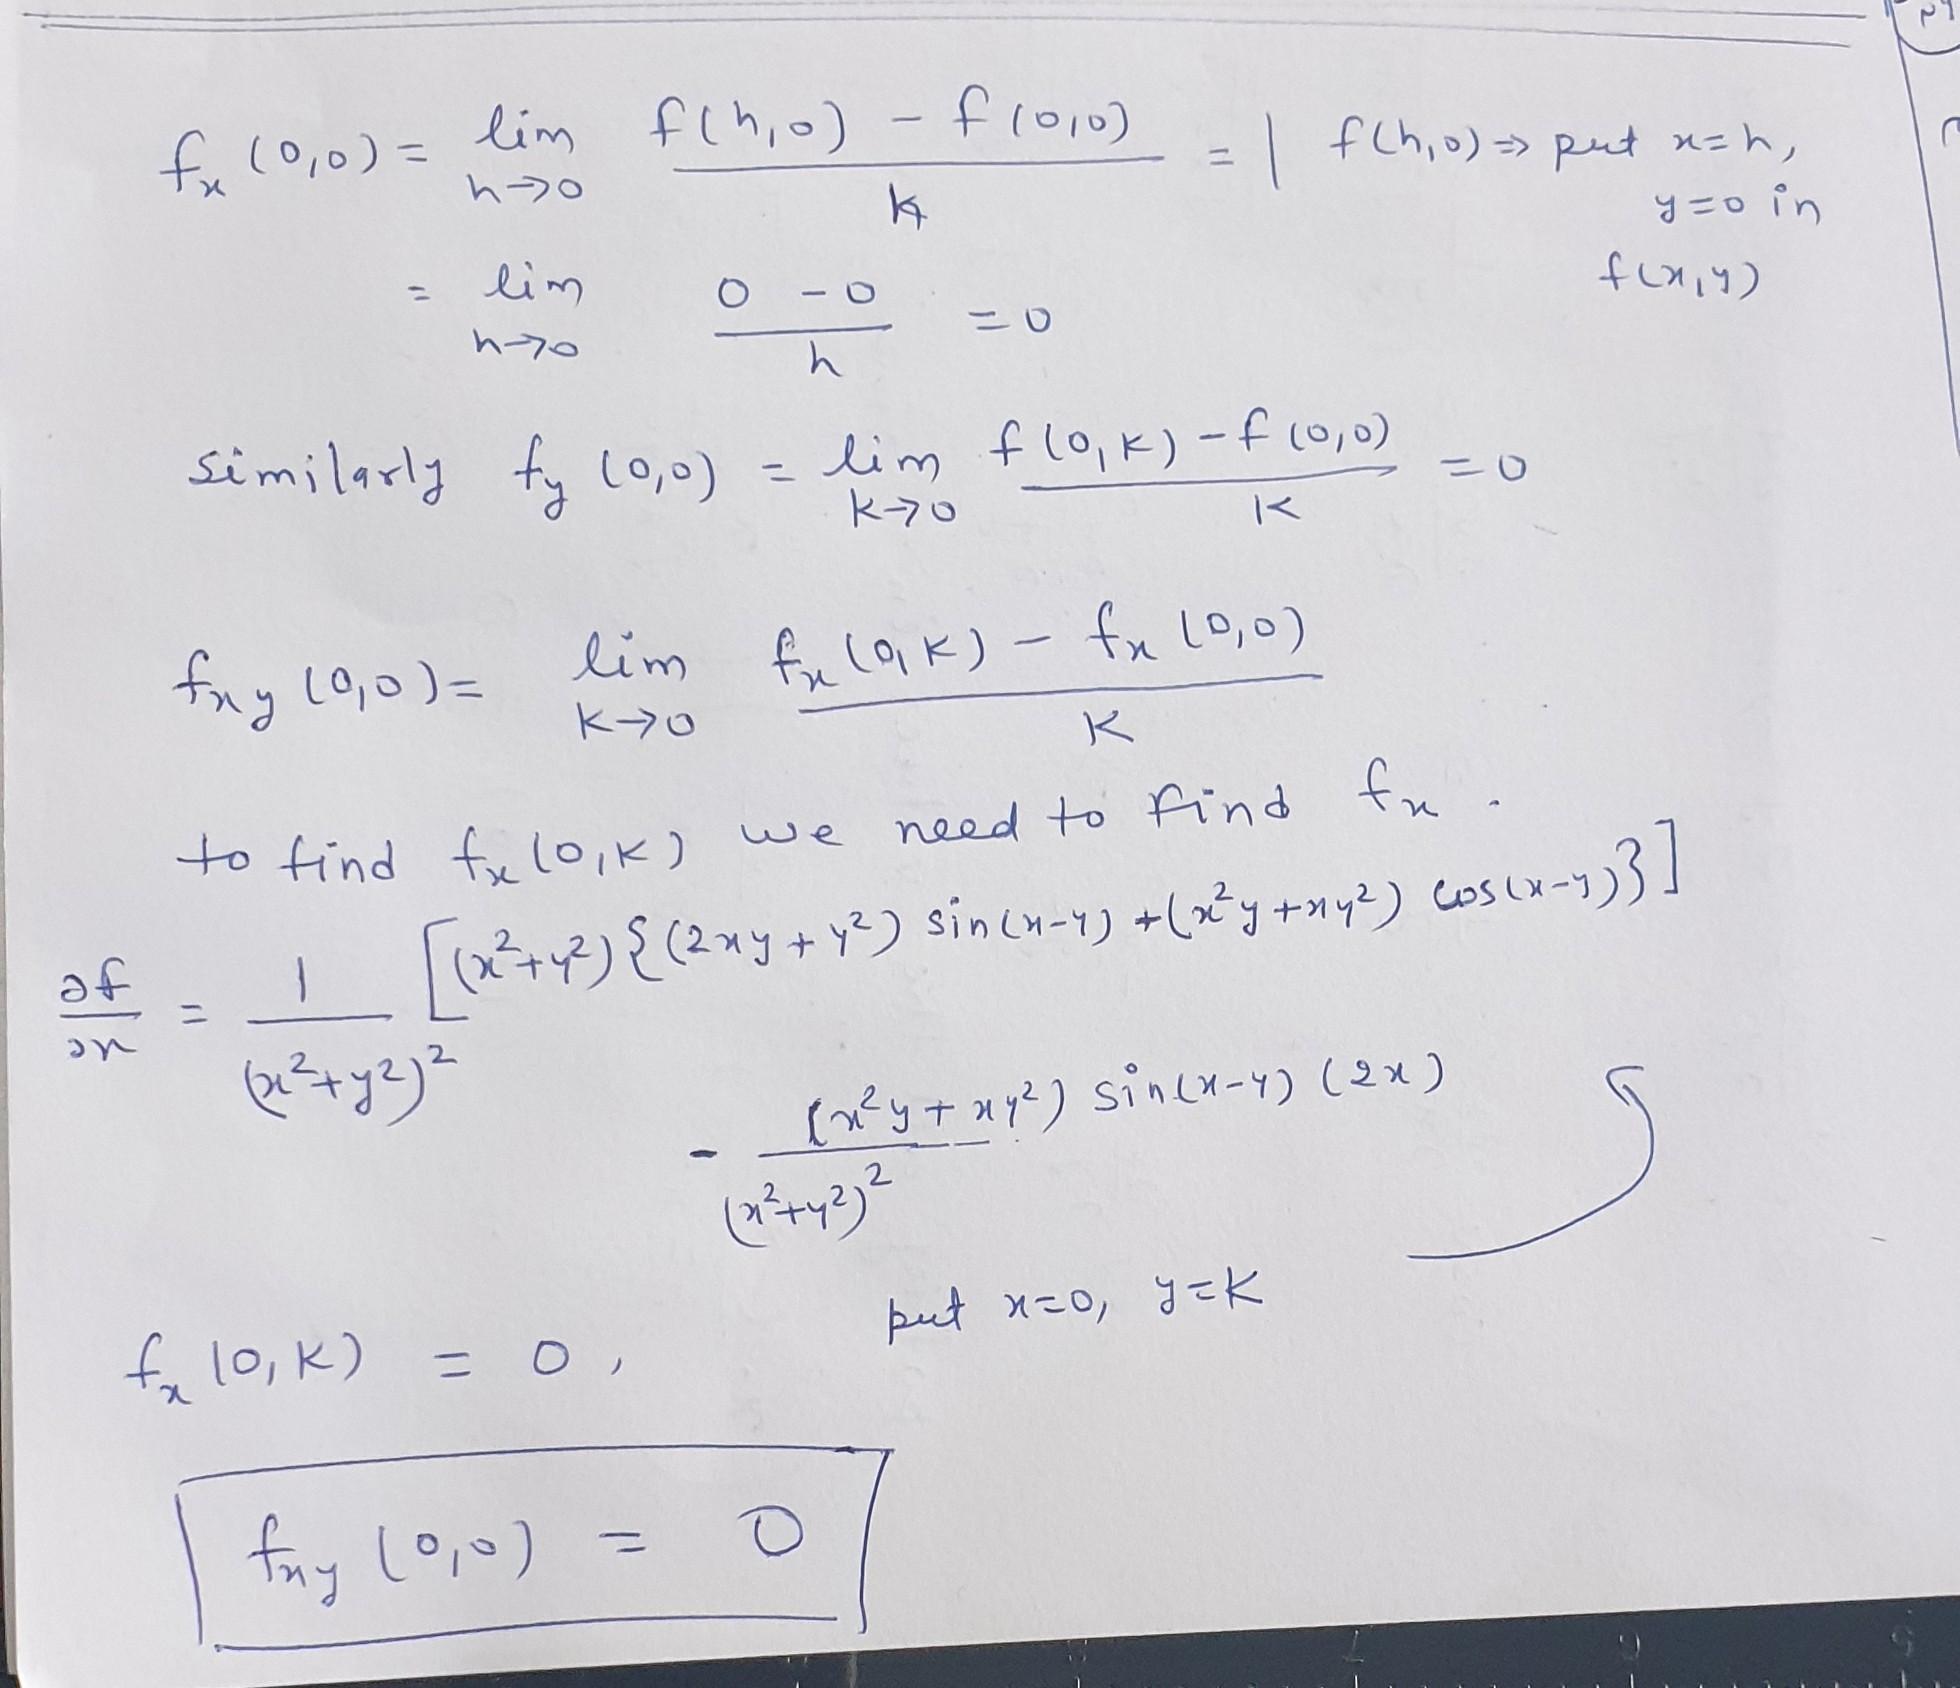 f_x (0,0) = lim_{h→0} (f(h,0) - f(0,0)) / k = | f(h,0) ⇒ put x=h,
y=0 in
f(x,y)
= lim_{h→0} (0 - 0) / h = 0
similarly f_y (0,0) = lim_{k→0} (f(0,k) - f(0,0)) / k = 0
f_xy (0,0) = lim_{k→0} (f_x (0,k) - f_x (0,0)) / k
to find f_x (0,k) we need to find f_x .
∂f/∂x = 1/(x²+y²)² [(x²+y²){(2xy+y²) sin(x-y) + (x²y+xy²) cos(x-y)}]
- (x²y+xy²) sin(x-y) (2x) / (x²+y²)²
put x=0, y=k
f_x (0,k) = 0,
f_xy (0,0) = 0